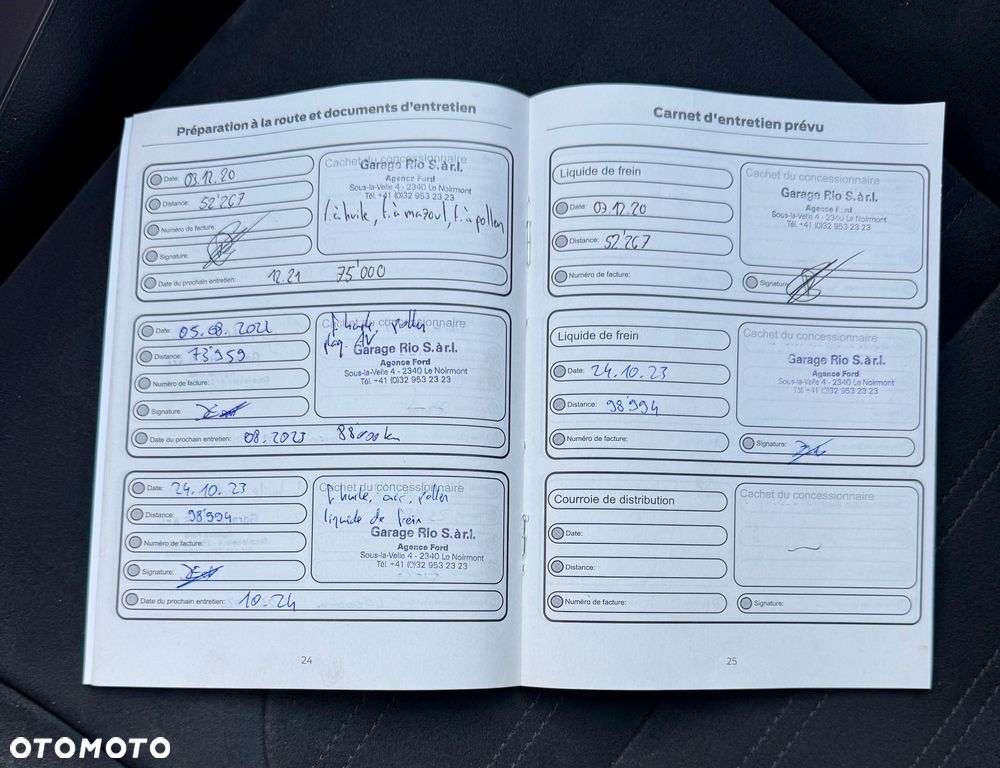 Préparation à la route et documents d'entretien
Date: 03.12.20
Distance: 52'267
Numéro de facture:
Signature:
Cachet du concessionnaire
Garage Rio S.àr.l.
Agence Ford
Sous-la-Velle 4 - 2340 Le Noirmont
Tél. +41 (0)32 953 23 23
f. à huile, f. à mazout, f. à pollen
Date du prochain entretien: 12.21 75'000
Date: 05.08.2022
Distance: 73'959
Numéro de facture:
Signature:
Cachet du concessionnaire
f. huile, pollen
plaq. AV
Garage Rio S.àr.l.
Agence Ford
Sous-la-Velle 4 - 2340 Le Noirmont
Tél. +41 (0)32 953 23 23
Date du prochain entretien: 08.2023 88'000 km
Date: 24.10.23
Distance: 98'994
Numéro de facture:
Signature:
Cachet du concessionnaire
f. huile, air, pollen
liquide de frein
Garage Rio S.àr.l.
Agence Ford
Sous-la-Velle 4 - 2340 Le Noirmont
Tél. +41 (0)32 953 23 23
Date du prochain entretien: 10.24
24
Carnet d'entretien prévu
Liquide de frein
Date: 03.12.20
Distance: 52'267
Numéro de facture:
Cachet du concessionnaire
Garage Rio S.àr.l.
Agence Ford
Sous-la-Velle 4 - 2340 Le Noirmont
Tél. +41 (0)32 953 23 23
Signature:
Liquide de frein
Date: 24.10.23
Distance: 98'994
Numéro de facture:
Cachet du concessionnaire
Garage Rio S.àr.l.
Agence Ford
Sous-la-Velle 4 - 2340 Le Noirmont
Tél. +41 (0)32 953 23 23
Signature:
Courroie de distribution
Date:
Distance:
Numéro de facture:
Cachet du concessionnaire
Signature:
25
OTOMOTO